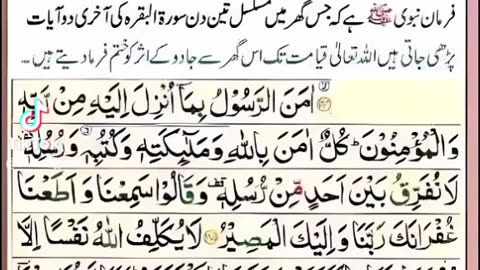 فرمان نبوی ﷺ ہے کہ جس گھر میں مسلسل تین دن سورۃ البقرہ کی آخری دو آیات
پڑھی جاتی ہیں اللہ تعالیٰ قیامت تک اس گھر سے جادو کے اثر کو ختم فرما دیتے ہیں...
اٰمَنَ الرَّسُوۡلُ بِمَاۤ اُنۡزِلَ اِلَيۡهِ مِنۡ رَّبِّهٖ
وَالۡمُؤۡمِنُوۡنَ ؕ كُلٌّ اٰمَنَ بِاللّٰهِ وَمَلٰٓئِكَتِهٖ وَكُتُبِهٖ وَرُسُلِهٖ
لَا نُفَرِّقُ بَيۡنَ اَحَدٍ مِّنۡ رُّسُلِهٖ وَقَالُوۡا سَمِعۡنَا وَاَطَعۡنَا
غُفۡرَانَكَ رَبَّنَا وَاِلَيۡكَ الۡمَصِيۡرُ لَا يُكَلِّفُ اللّٰهُ نَفۡسًا اِلَّا